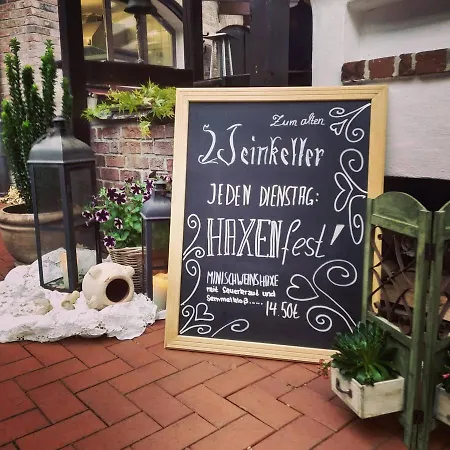 Zum alten
Weinkeller
JEDEN DIENSTAG:
HAXENfest!
MINISCHWEINSHAXE
mit Sauerkraut und
Semmelkloß.... 14.50€